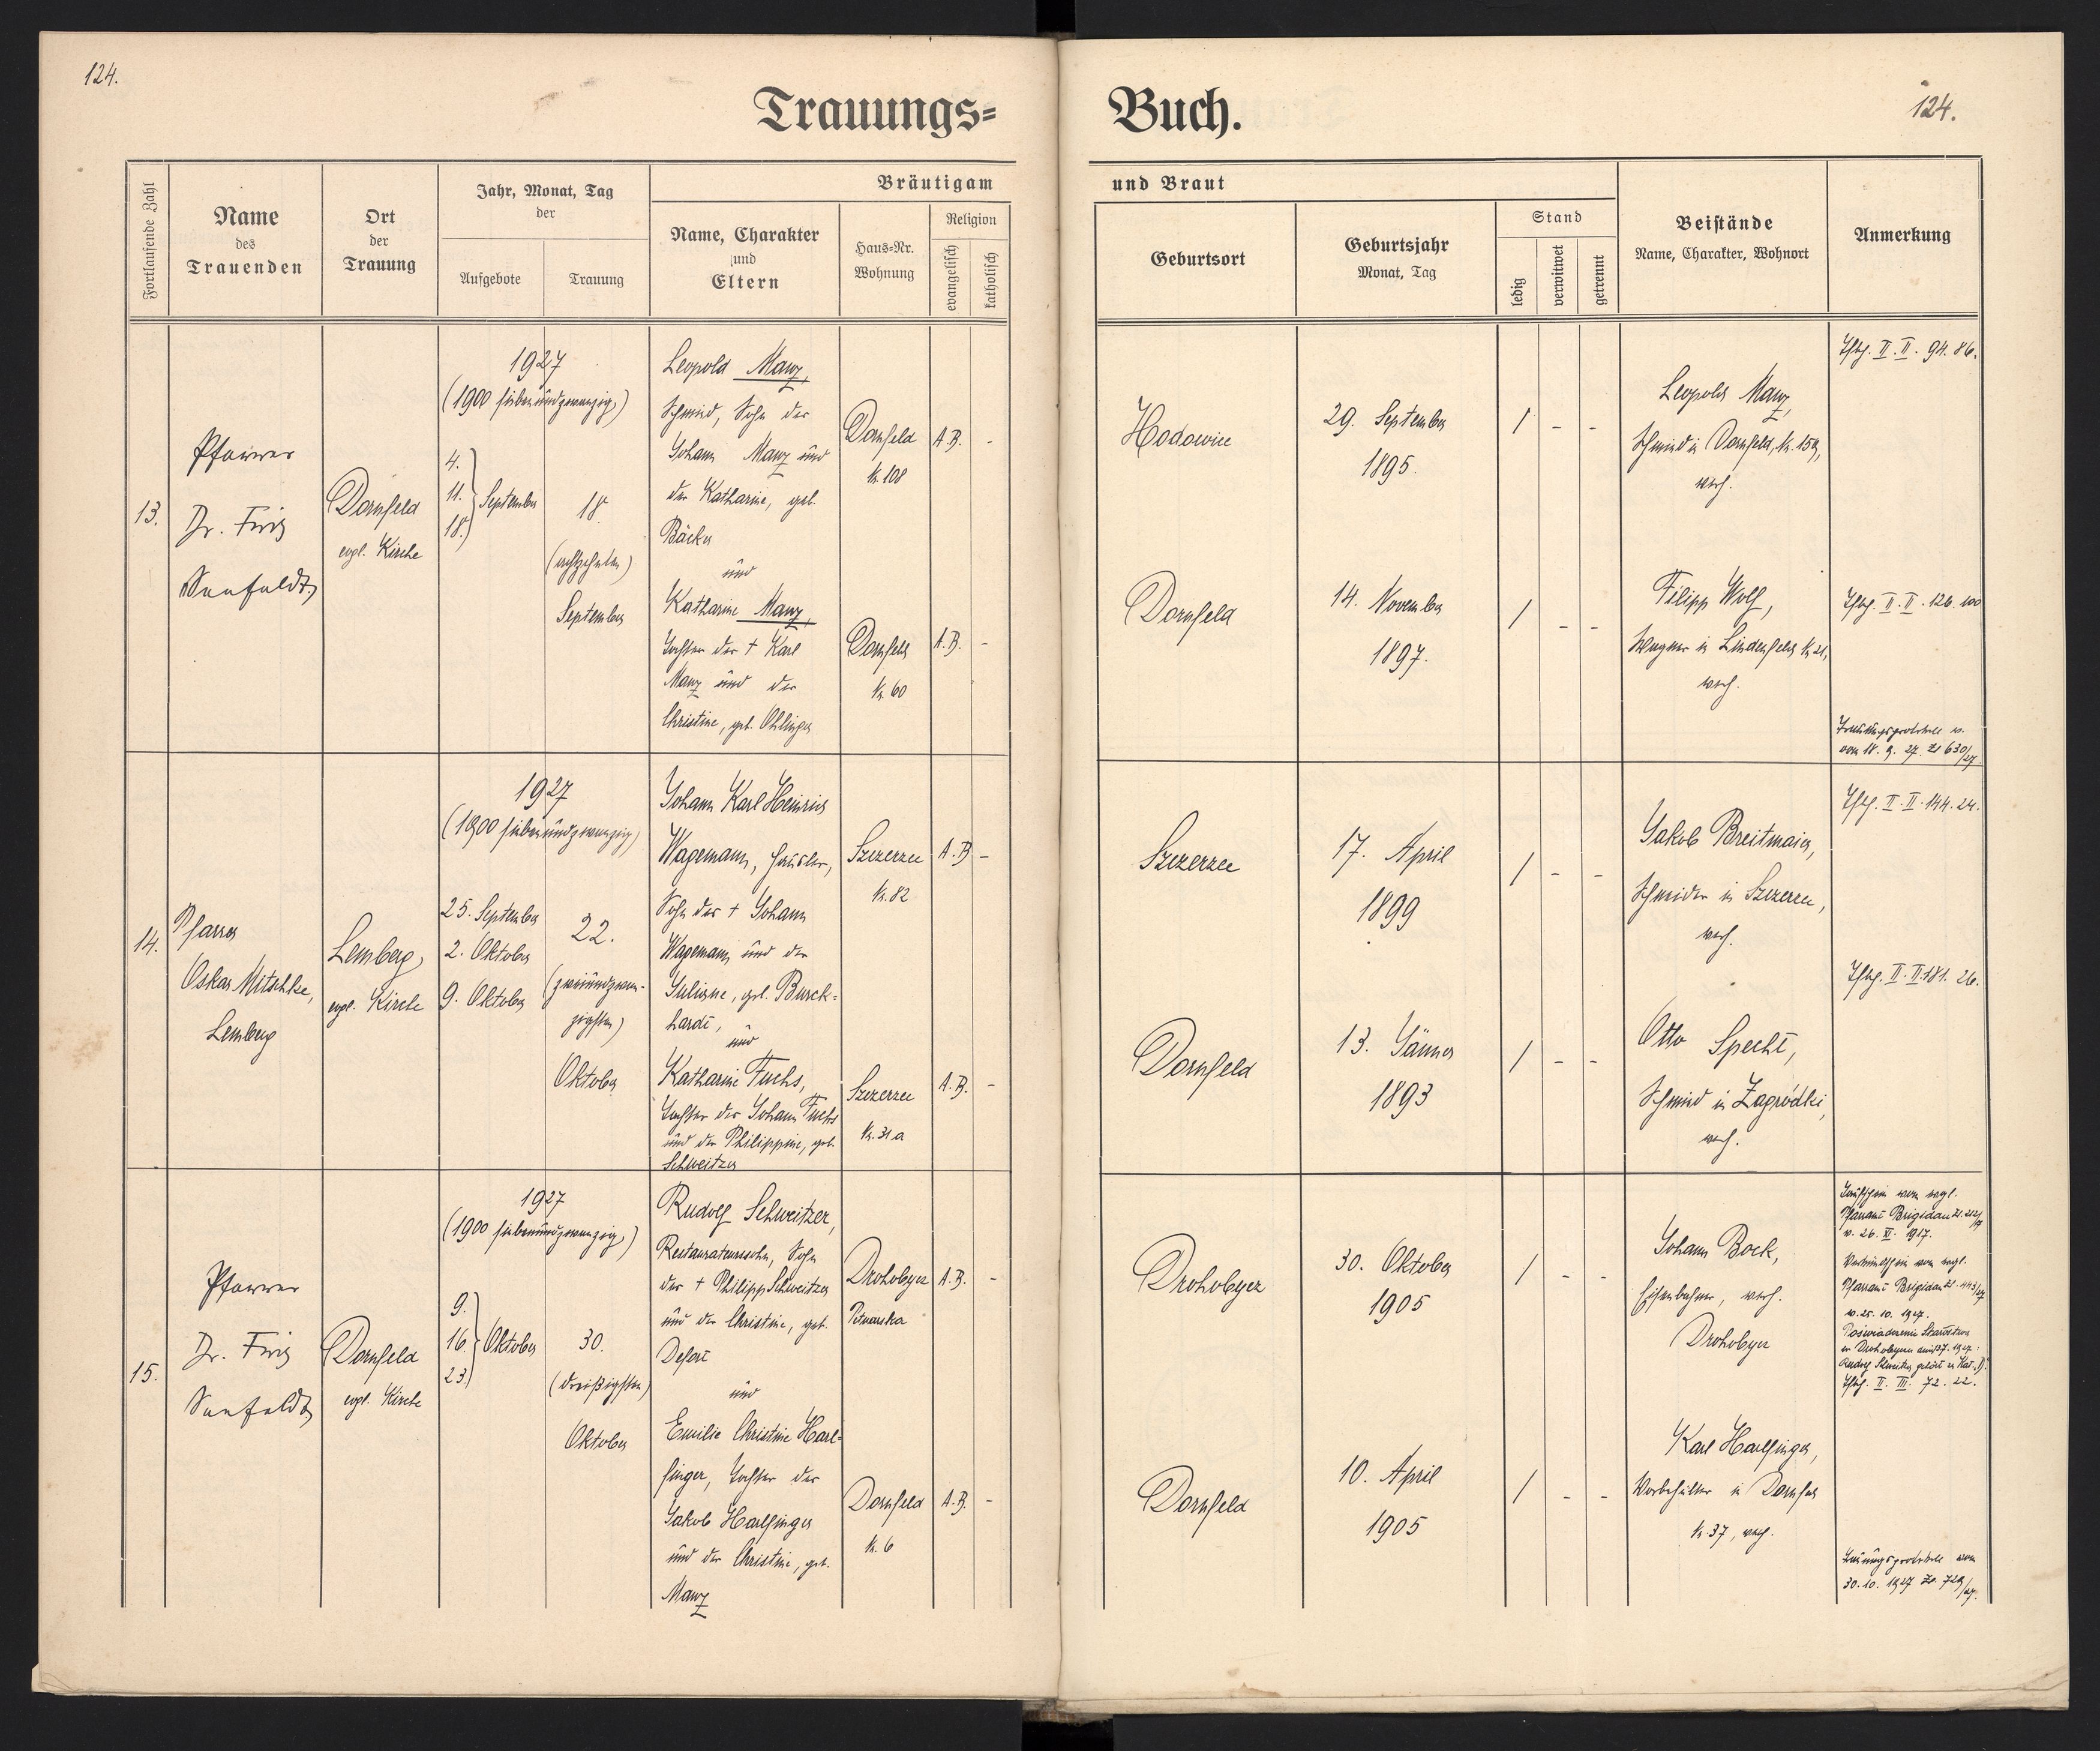 124.
Trauungs=
Buch.
124.
Fortlaufende Zahl
Name
des
Trauenden
Ort
der
Trauung
Jahr, Monat, Tag
der
Aufgebote
Trauung
Bräutigam
Name, Charakter
und
Eltern
Haus=Nr.
Wohnung
Religion
evangelisch
katholisch
und Braut
Geburtsort
Geburtsjahr
Monat, Tag
Stand
ledig
verwitwet
getrennt
Beistände
Name, Charakter, Wohnort
Anmerkung
13.
Pfarrer
Dr. Fritz
Seefeldt
Dornfeld
evgl. Kirche
1927
(1900 siebenundzwanzig)
4.
11. September
18.
18.
(achtzehnten)
September
Leopold Manz,
Schmied, Sohn des
Johann Manz und
der Katharine, geb.
Bäcker
und
Katharine Manz,
Tochter des + Karl
Manz und der
Christine, geb. Ohlinger
Dornfeld
Nr. 108
A.B. -
Dornfeld
Nr. 60
A.B. -
Hodowice
29. September
1895.
/ - -
Leopold Manz,
Schmied in Dornfeld, Nr. 159,
evgl.
Dornfeld
14. November
1897.
/ - -
Filipp Wolf,
Wagner in Lindenfeld Nr. 21,
evgl.
Tfbg. II. II. 94. 86.
Tfbg. II. II. 126. 100
Trauungsprotokoll
vom 18. 9. 27. Zl 630/27
14.
Pfarrer
Oskar Mitschke,
Lemberg
Lemberg,
evgl. Kirche
1927
(1900 siebenundzwanzig)
25. September
2. Oktober
9. Oktober
22.
(zweiundzwan-
zigsten)
Oktober
Johann Karl Heinrich
Wagemann, Häusler,
Sohn des + Johann
Wagemann und der
Juliane, geb. Burck=
hardt,
und
Katharine Fuchs,
Tochter des Johann Fuchs
und der Philippine, geb.
Schweitzer
Szczerzec
Nr. 82
A.B. -
Szczerzec
Nr. 31 a
A.B. -
Szczerzec
17. April
1899
/ - -
Jakob Breitmaier,
Schneider in Szczerzec,
evgl.
Dornfeld
13. Jänner
1893
/ - -
Otto Specht,
Schmied in Zagródki,
evgl.
Tfbg. II. II. 144. 24.
Tfbg. II. II. 181. 26.
15.
Pfarrer
Dr. Fritz
Seefeldt
Dornfeld
evgl. Kirche
1927
(1900 siebenundzwanzig)
9.
16. Oktober
23.
30.
(dreißigsten)
Oktober
Rudolf Schweitzer,
Restaurateurssohn, Sohn
des + Philipp Schweitzer
und der Christine, geb.
und
Emilie Christine Harl=
finger, Tochter des
Jakob Harlfinger
und der Christine, geb.
Manz
Drohobycz
A.B. -
Dornfeld
Nr. 6
A.B. -
Drohobycz
30. Oktober
1905
/ - -
Johann Bock,
Eisenbahner, evgl.
Drohobycz
Dornfeld
10. April
1905
/ - -
Karl Harlfinger,
in Dornfeld
Nr. 37, evgl.
Taufschein vom evgl.
Pfarramt Brigidau Zl.
v. 26. XI. 1917.
vom evgl.
Pfarramt Brigidau Zl. 443/27
v. 25. 10. 1927.
Starostwa
Rudolf Schweitzer
Tfbg. II. III. 72. 22.
Trauungsprotokoll vom
30. 10. 1927 Zl. 729/27.